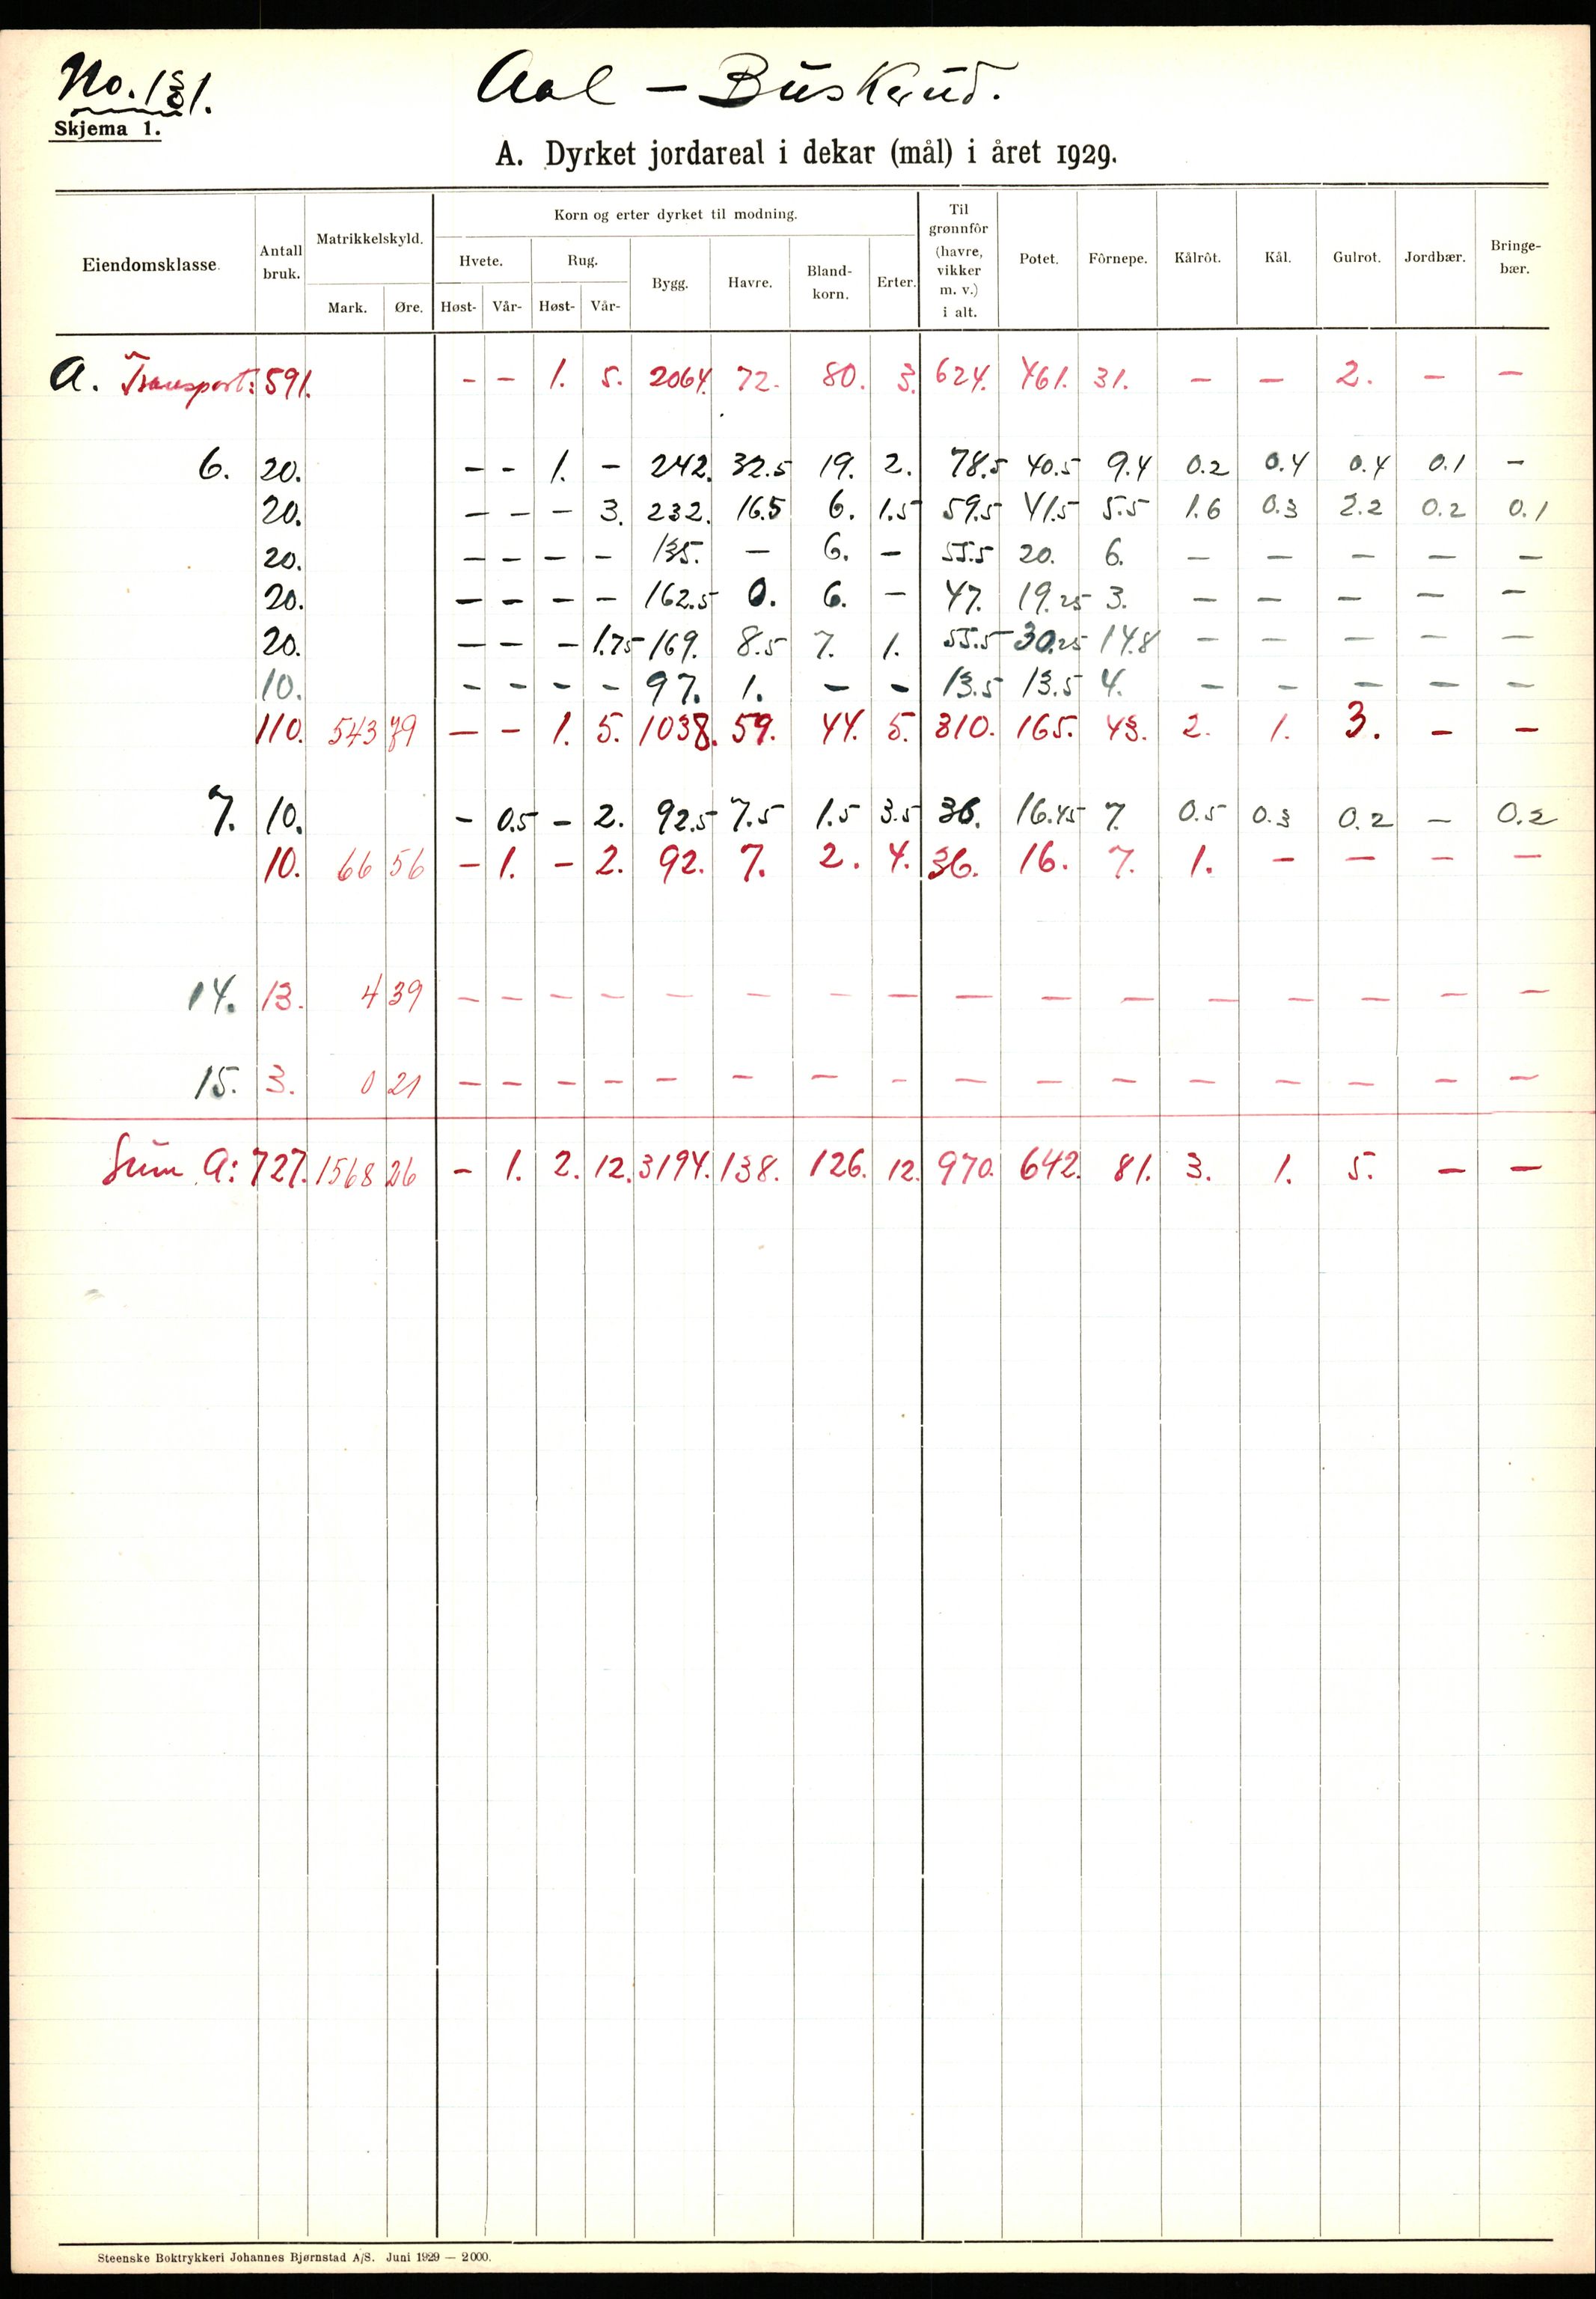 No. 131.
Aal – Buskerud.
Skjema 1.
A. Dyrket jordareal i dekar (mål) i året 1929.
Eiendomsklasse. Antall bruk. Matrikkelskyld. Mark. Øre. Korn og erter dyrket til modning. Hvete. Høst- Vår- Rug. Høst- Vår- Bygg. Havre. Bland-korn. Erter. Til grønnfôr (havre, vikker m. v.) i alt. Potet. Fôrnepe. Kålrôt. Kål. Gulrot. Jordbær. Bringe-bær.
A. Transport: 591. - - 1. 5. 2064. 72. 80. 3. 624. 461. 31. - - 2. - -
6. 20. - - 1. - 242. 32.5 19. 2. 78.5 40.5 9.4 0.2 0.4 0.4 0.1 -
20. - - - 3. 232. 16.5 6. 1.5 59.5 41.5 5.5 1.6 0.3 2.2 0.2 0.1
20. - - - - 135. - 6. - 55.5 20. 6. - - - - -
20. - - - - 162.5 0. 6. - 47. 19.25 3. - - - - -
20. - - - 1.75 169. 8.5 7. 1. 55.5 30.25 14.8 - - - - -
10. - - - - 97. 1. - - 13.5 13.5 4. - - - - -
110. 543 79 - - 1. 5. 1038. 59. 44. 5. 310. 165. 43. 2. 1. 3. - -
7. 10. - 0.5 - 2. 92.5 7.5 1.5 3.5 36. 16.45 7. 0.5 0.3 0.2 - 0.2
10. 66 56 - 1. - 2. 92. 7. 2. 4. 36. 16. 7. 1. - - - -
14. 13. 4 39 - - - - - - - - - - - - - - - -
15. 3. 0 21 - - - - - - - - - - - - - - - -
Sum A: 727. 1568 26 - 1. 2. 12. 3194. 138. 126. 12. 970. 642. 81. 3. 1. 5. - -
Steenske Boktrykkeri Johannes Bjørnstad A/S. Juni 1929 — 2000.